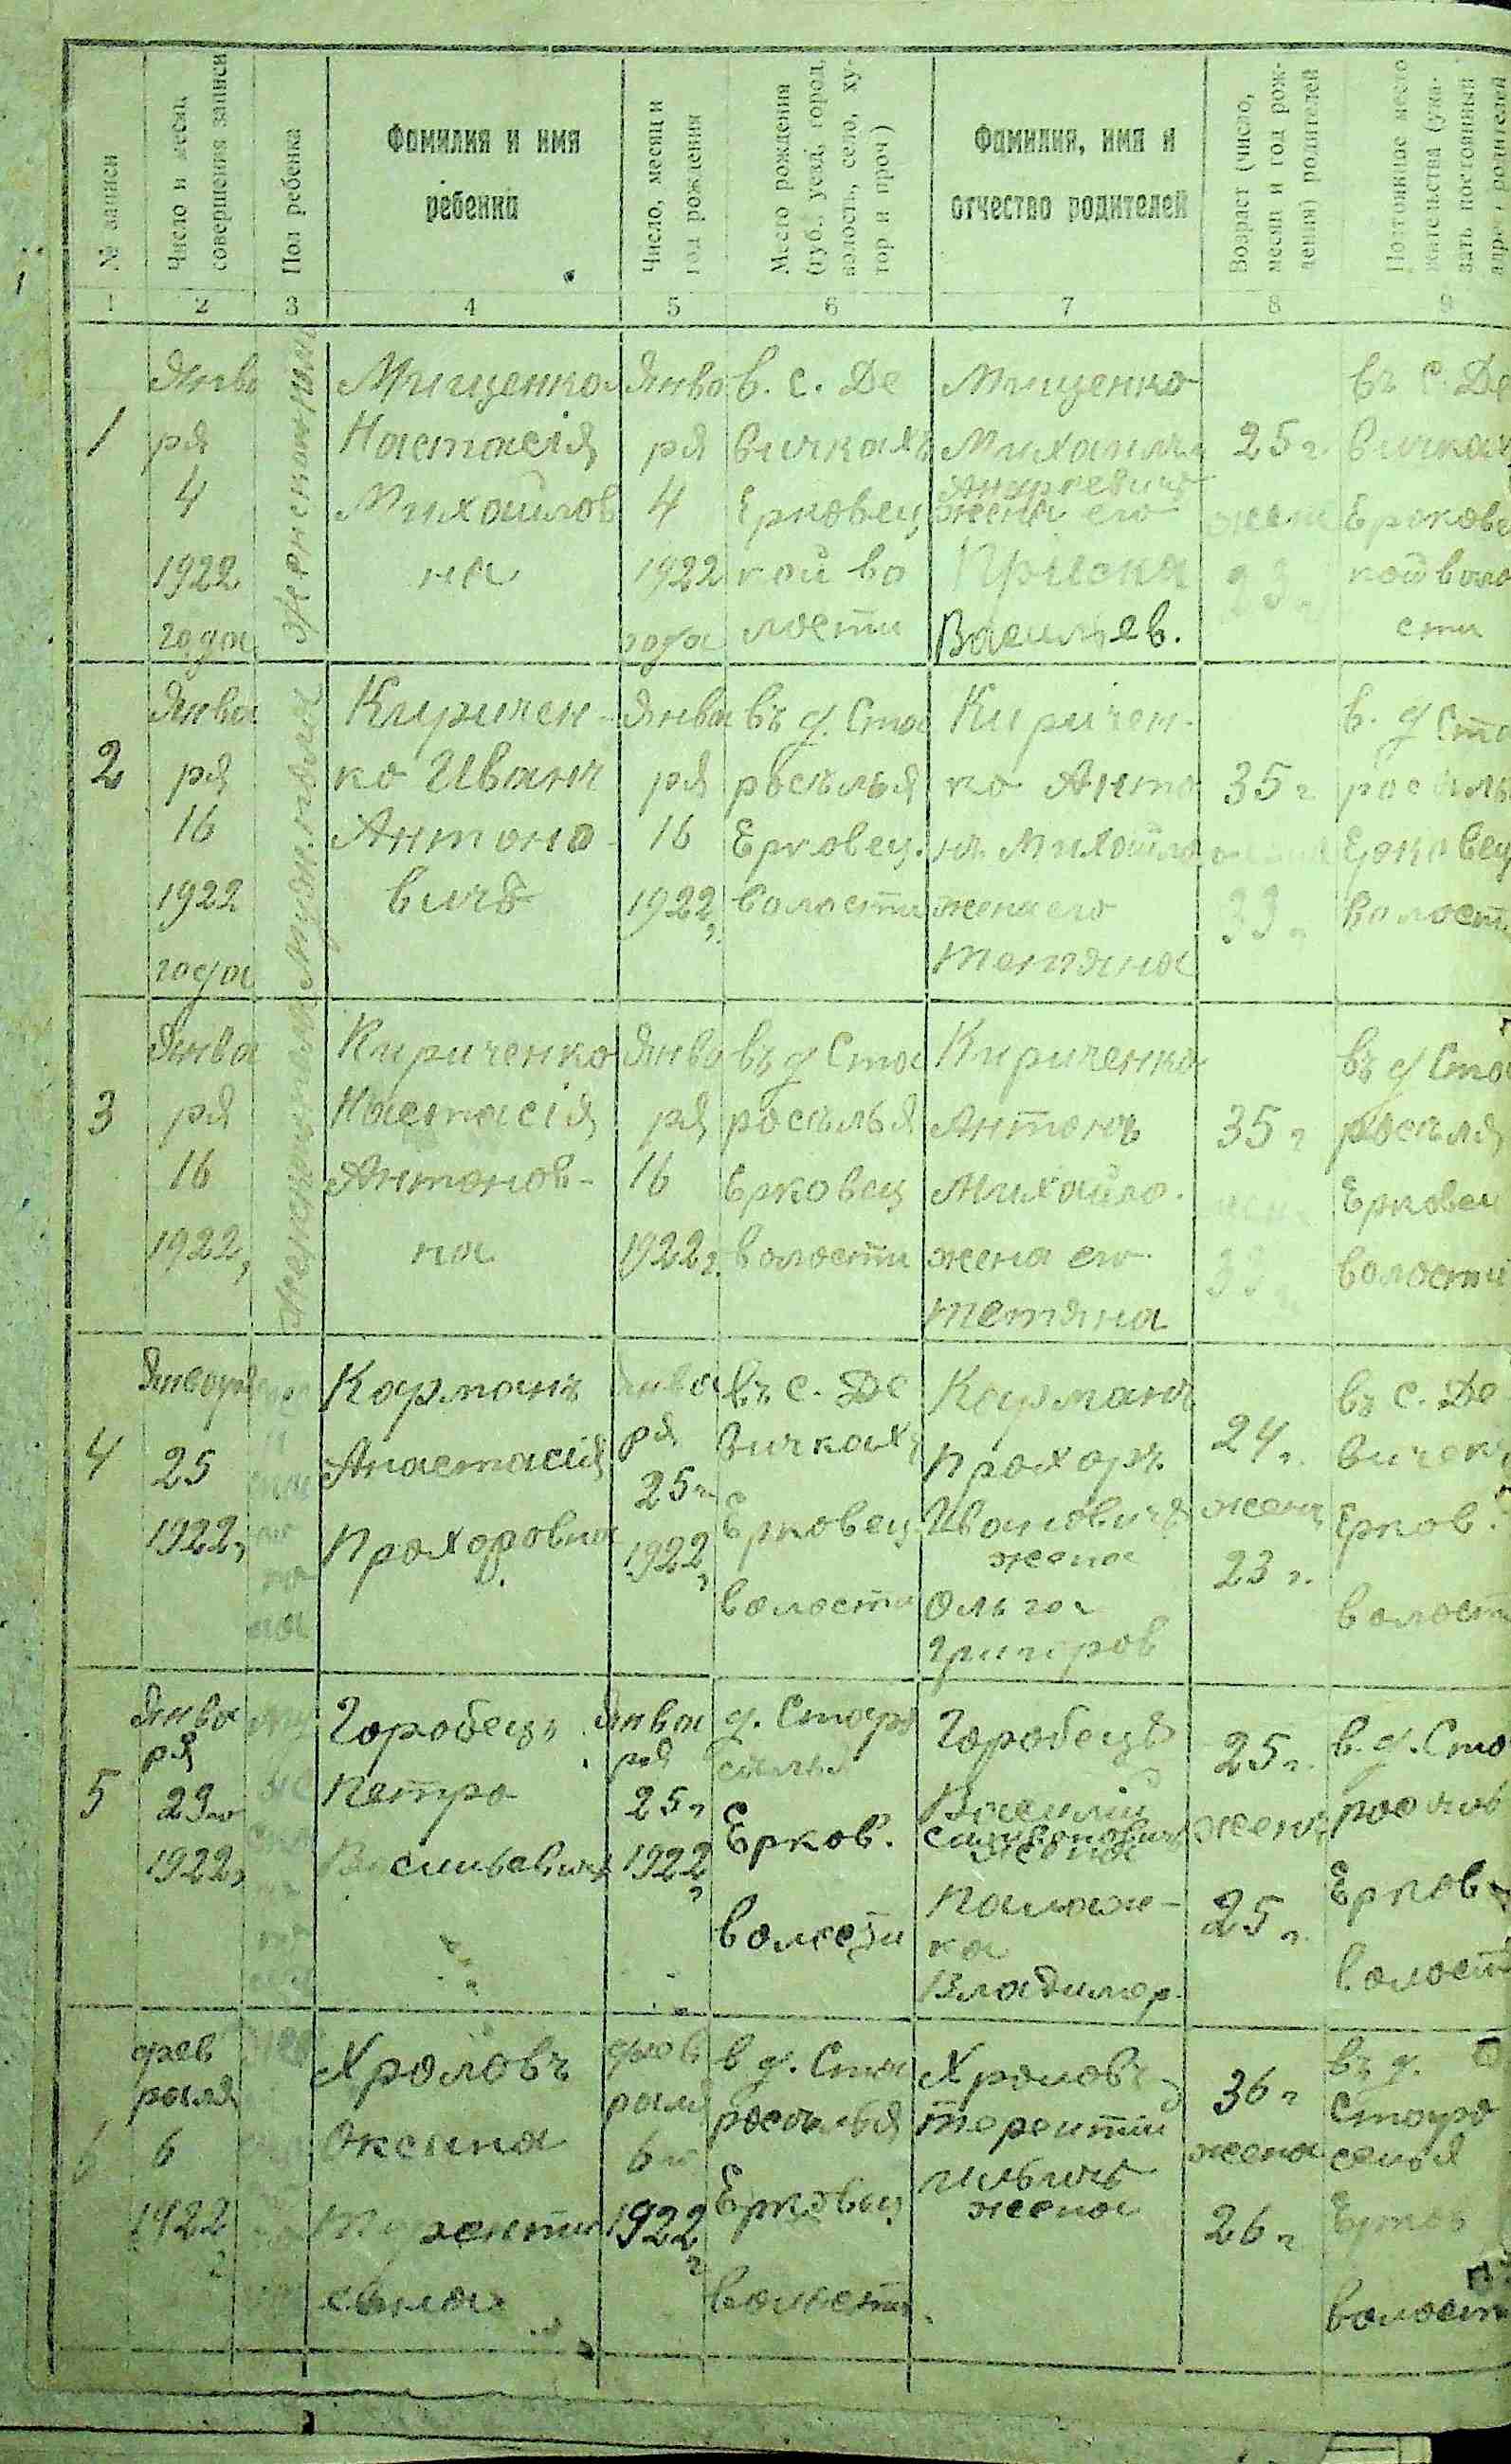 № записи
Число и месяц
совершения записи
Пол ребенка
Фамилия и имя
ребенка
Число, месяц и
год рождения
Место рождения
(губ., уезд, город,
волость, село, ху-
тор и проч)
Фамилия, имя и
отчество родителей
Возраст (число,
месяц и год рож-
дения) родителей
Постоянное место
жительства (ука-
зать постоянный
адрес родителей
1 2 3 4 5 6 7 8 9
1
Янва
ря
4
1922
года
Мищенко
Настасія
Михайлов
на
Янва
ря
4
1922
года
в. с. Де
вичкахъ
Ерковец
кой во
лости
Мищенко
Михаилъ
жена его
Василиев.
25 г.
23 г.
въ с. Де
вичках
Ерковец
кой воло
сти
2
Янва
ря
16
1922
года
Киричен-
ко Иванъ
Антоно-
вичъ
Янва
ря
16
1922
г.
въ д. Ста
росѣлья
Ерковец.
волости
Киричен-
ко Анто
нъ Михайло
жена его
Тетяна
35 г.
33 г.
в. д Ста
Ерковец
волост
3
Янва
ря
16
1922,
Кириченко
Настасія
Антонов-
на
Янва
ря
16
1922 г.
въ д Ста
росѣлья
Ерковец
волости
Кириченко
Антонъ
Михайло.
жена его
Тетяна
35 г.
33
въ д Ста
росѣля
Ерковец
волости
4
Января
25
1922,
Карманъ
Анастасія
Прохоровна
Янва
ря
25 г.
1922
г.
въ с. Де
вичкахъ
Ерковец.
волости
Карманъ
Прохоръ
Ивановичъ
жена
Ольга
Григоров
24 г.
жена
23 г.
въ с. Де
Ерков.
волост
5
Янва
ря
1922,
Горобецъ
Петро
Васильевичъ
Янва
ря
25 г
1922
г
д. Старо
сѣлья
Ерков.
волости
Горобецъ
Василій
жена
ка
Владимер.
25 г.
жена
25 г.
в. д. Ста
Ерков
волост
6
фев
раля
6
1922
г
Хроловъ
Оксана
фев
раля
6 г
1922
г
в д. Ста
росѣлья
Ерковец
волости.
Хроловъ
Терентий
жена
36 г
жена
26 г
въ д.
Старо
селья
Ерков
волост